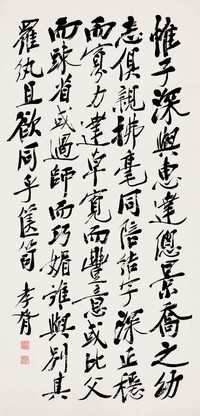 惟子深與惠達總景喬之幼
志俱親拂毫同陪結字深正穩
而寡力達草寬而豐意或比父
而疎省或過師而巧媚誰與別其
羅紈且欲同乎篋笥 孝胥